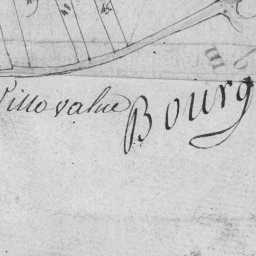 Pillovalue Bourg